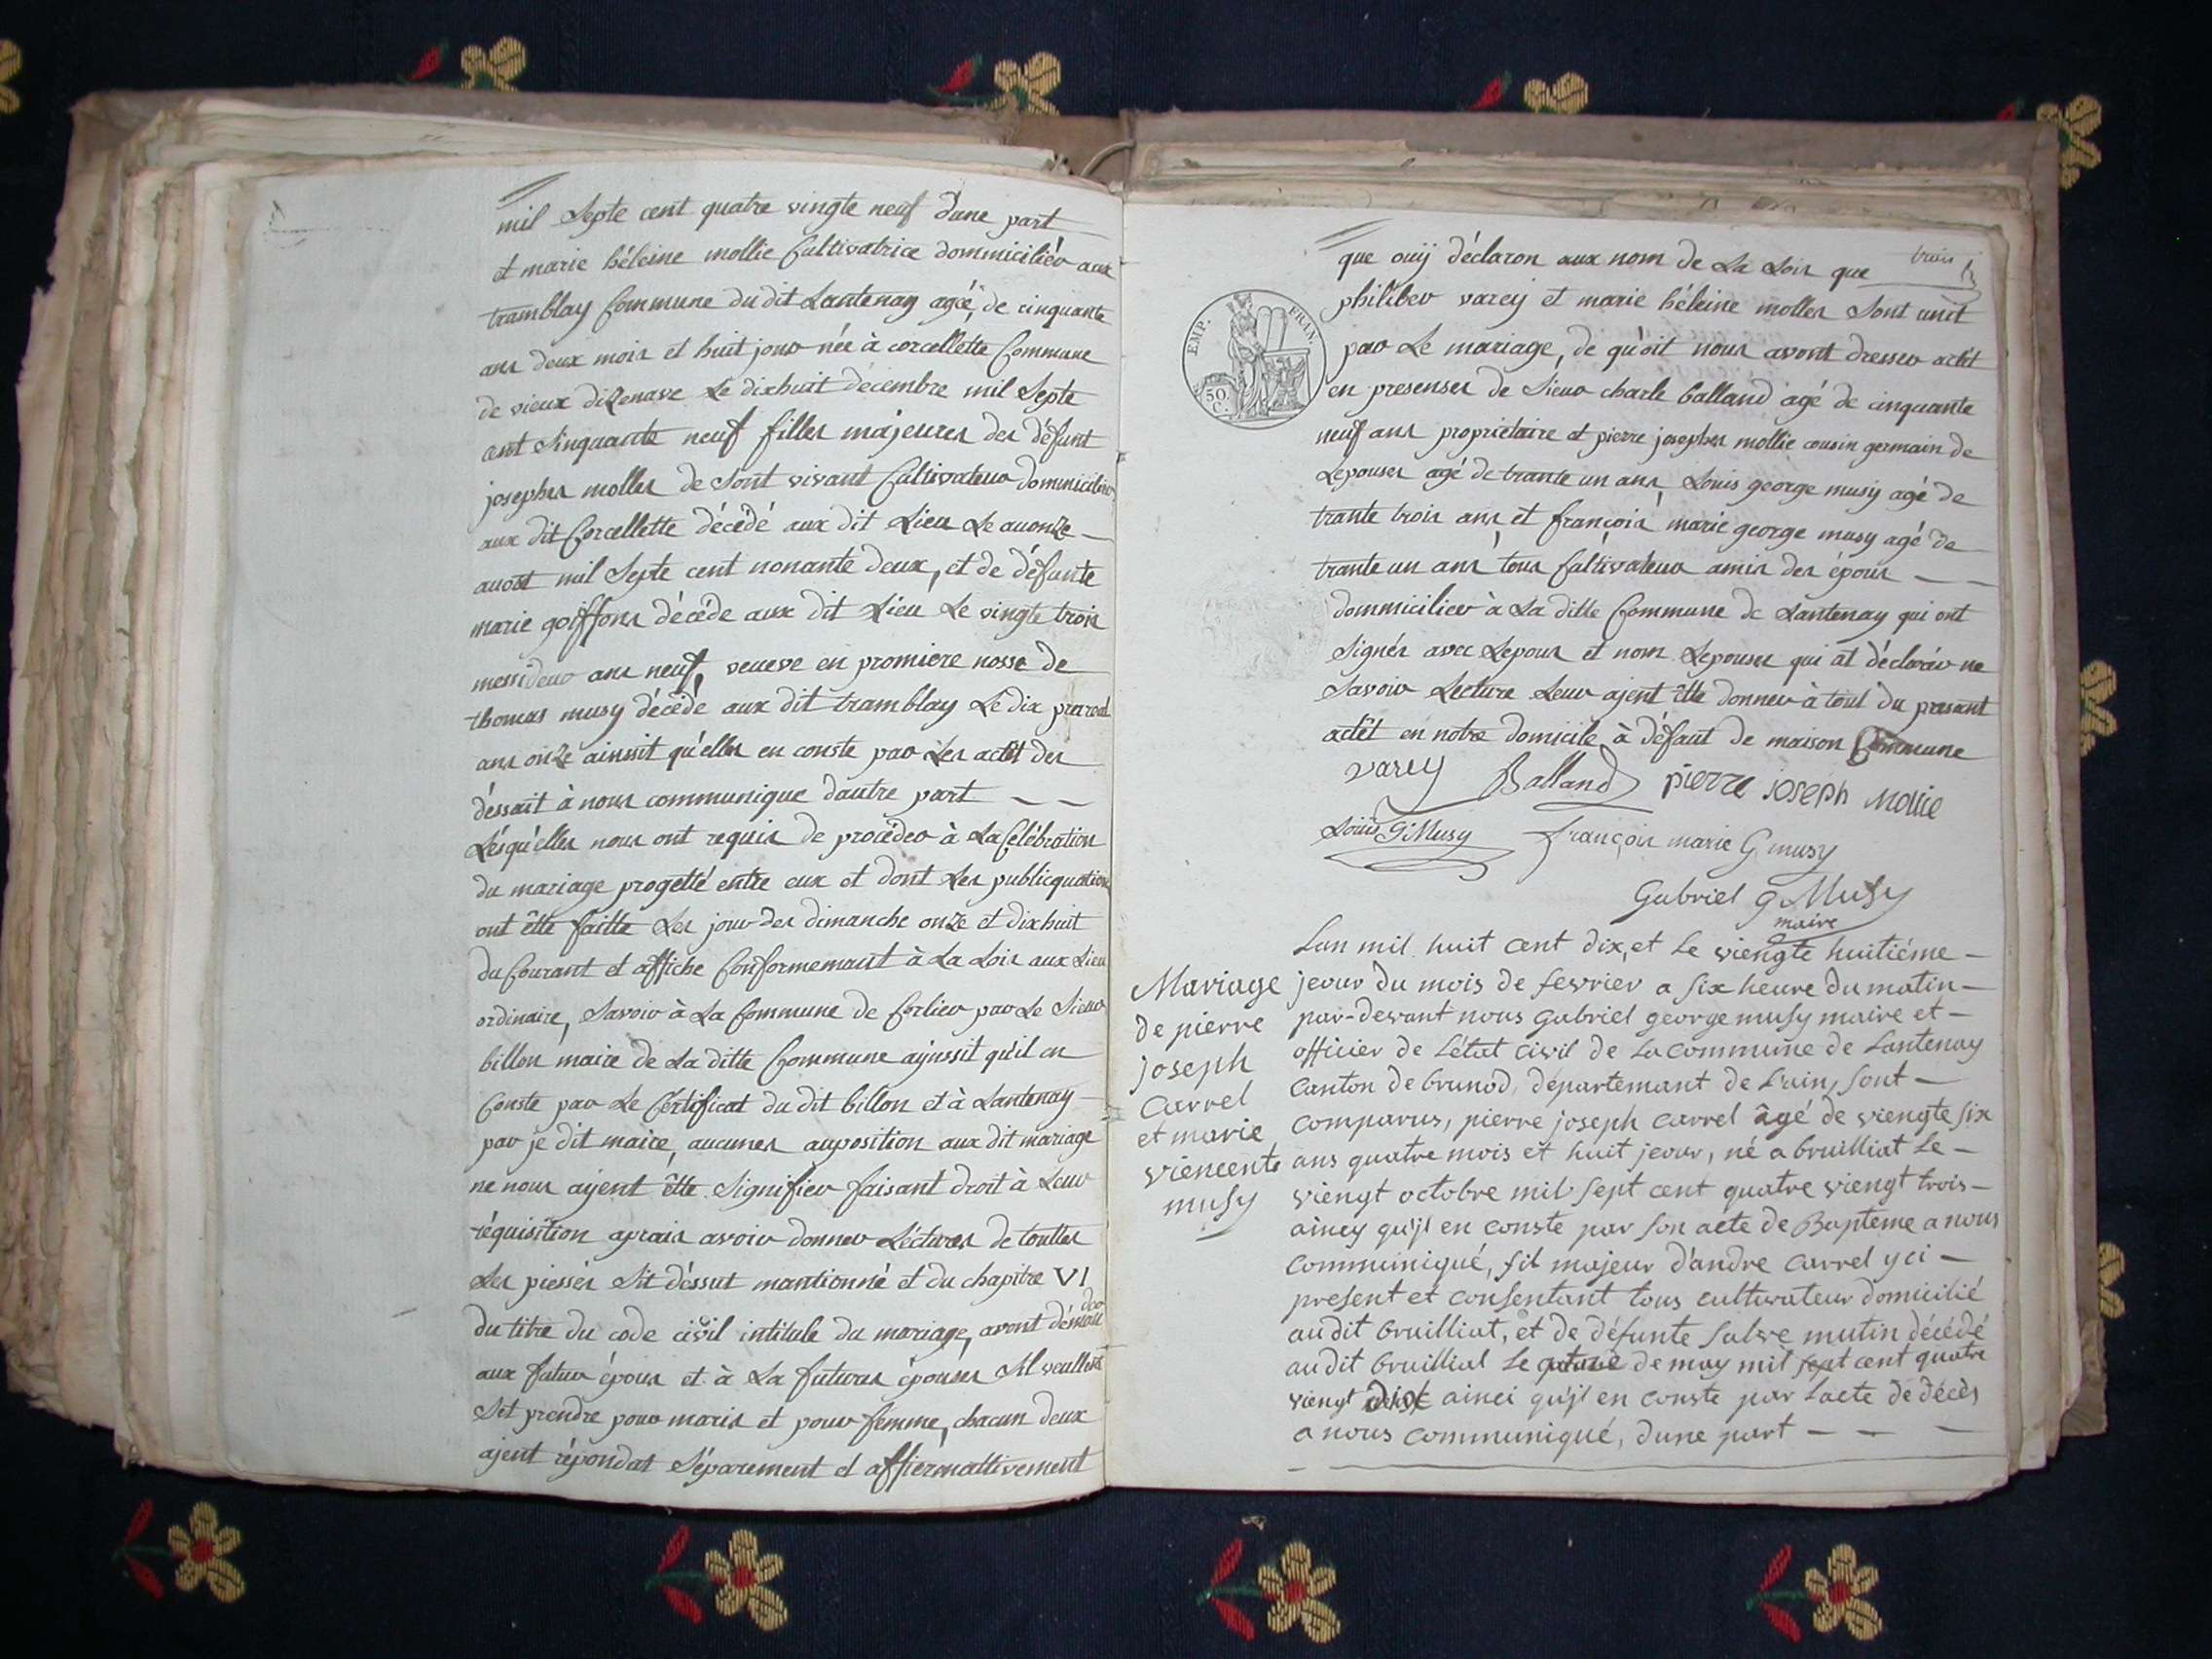 mil Septe cent quatre vingte neuf dune part
et marie héleine mollie Cultivatrice dommiciliéo aux
tramblay Commune du dit Lantenay agéé, de cinquante
ans deux mois et huit jouro née à corcellette Commune
de vieux dizenave Le dixhuit décembre mil Septe
cent Sinquante neuf filles majeures des défunt
josephes molles de Sont vivant Cultivateuo dommicilieo
aux dit Corcellette décédé aux dit Lieu Le auonze
auost mil Septe cent nonante deux, et de défunte
marie goiffons décéde aux dit Lieu Le vingte trois
messideuo ans neuf, veueve en promiere nosse de
thomas musy décédé aux dit tramblay Le dix
ans onze ainssit qu'elles en conste pao Les actét des
déssait à nous communique dautre part
Lésqu'elles nous ont requis de procédeo à La Célébration
du mariage progetté entre eux et dont Les publicquations
ont étte faitte Les jouo des dimanche onze et dixhuit
du Courant et affiche Conformemant à La Lois aux Lieu
ordinaire, Savoio à La Commune de Corlieo pao Le Sieuo
billon maire de La ditte Commune ajnssit qu'il en
Conste pao Le Cértificat du dit billon et à Lantenay
pao je dit maire, aucunes auposition aux dit mariage
ne nous aijent étte Signifieo faisant droit à Leuo
réquisition aprais avoio donneo Léctures de touttes
Les piessés Sit déssut mantionné et du chapitre VI
du titre du code civil intitule du mariage, avont démandeo
aux futuo épous et à La futures épouses Sil veullent
Set prendre pouo maris et pouo fémme, chacun deux
ajent répondat Séparement et affiermattivement
trois
que ouij déclaron aux nom de La Lois que
philibeo varey et marie héleine molles Sont unit
pao Le mariage, de qu'oit nous avont dresseo actét
EMP. FRAN.
50. C.
en presenses de Sieuo charle balland agé de cinquante
neuf ans proprietaire et pierre josephes mollie cousin germain de
Lepouses agé de trante un ans, Louis george musy agé de
trante trois ans et françois marie george musy agé de
trante un ans tous Cultivateuo amis des épous
dommicilieo à La ditte Commune de Lantenay qui ont
Signés avec Lepous et nom Lepouses qui at décloréo ne
Savoio Lecture Leuo ajent étte donneo à tout du présant
actét en notre domicile à défaut de maison Commune
varey Balland pierre joseph mollie
Louis G Musy françois marie G musy
Gabriel g Musy
maire
Lan mil huit cent dix, et Le viengte huitiéme
Mariage
de pierre
joseph
Carrel
et marie
viencente
musy
jeour du mois de fevrier a six heure du matin
par-devant nous Gabriel george musy maire et
officier de Létat civil de La commune de Lantenay
Canton de brunod, département de Lain, sont
comparus, pierre joseph carrel âgé de viengte six
ans quatre mois et huit jeour, né a bruilliat Le
viengt octobre mil sept cent quatre viengt trois
aincy qu'jl en conste par son acte de Bapteme a nous
communiqué, fil majeur d'andre carrel yci
present et consentant tous cultivateur domicilié
au dit bruilliat, et de défunte mutin décédé
au dit bruilliat Le de may mil sept cent quatre
viengt dixt ainci qu'jl en conste par Lacte de décès
a nous communiqué, dune part